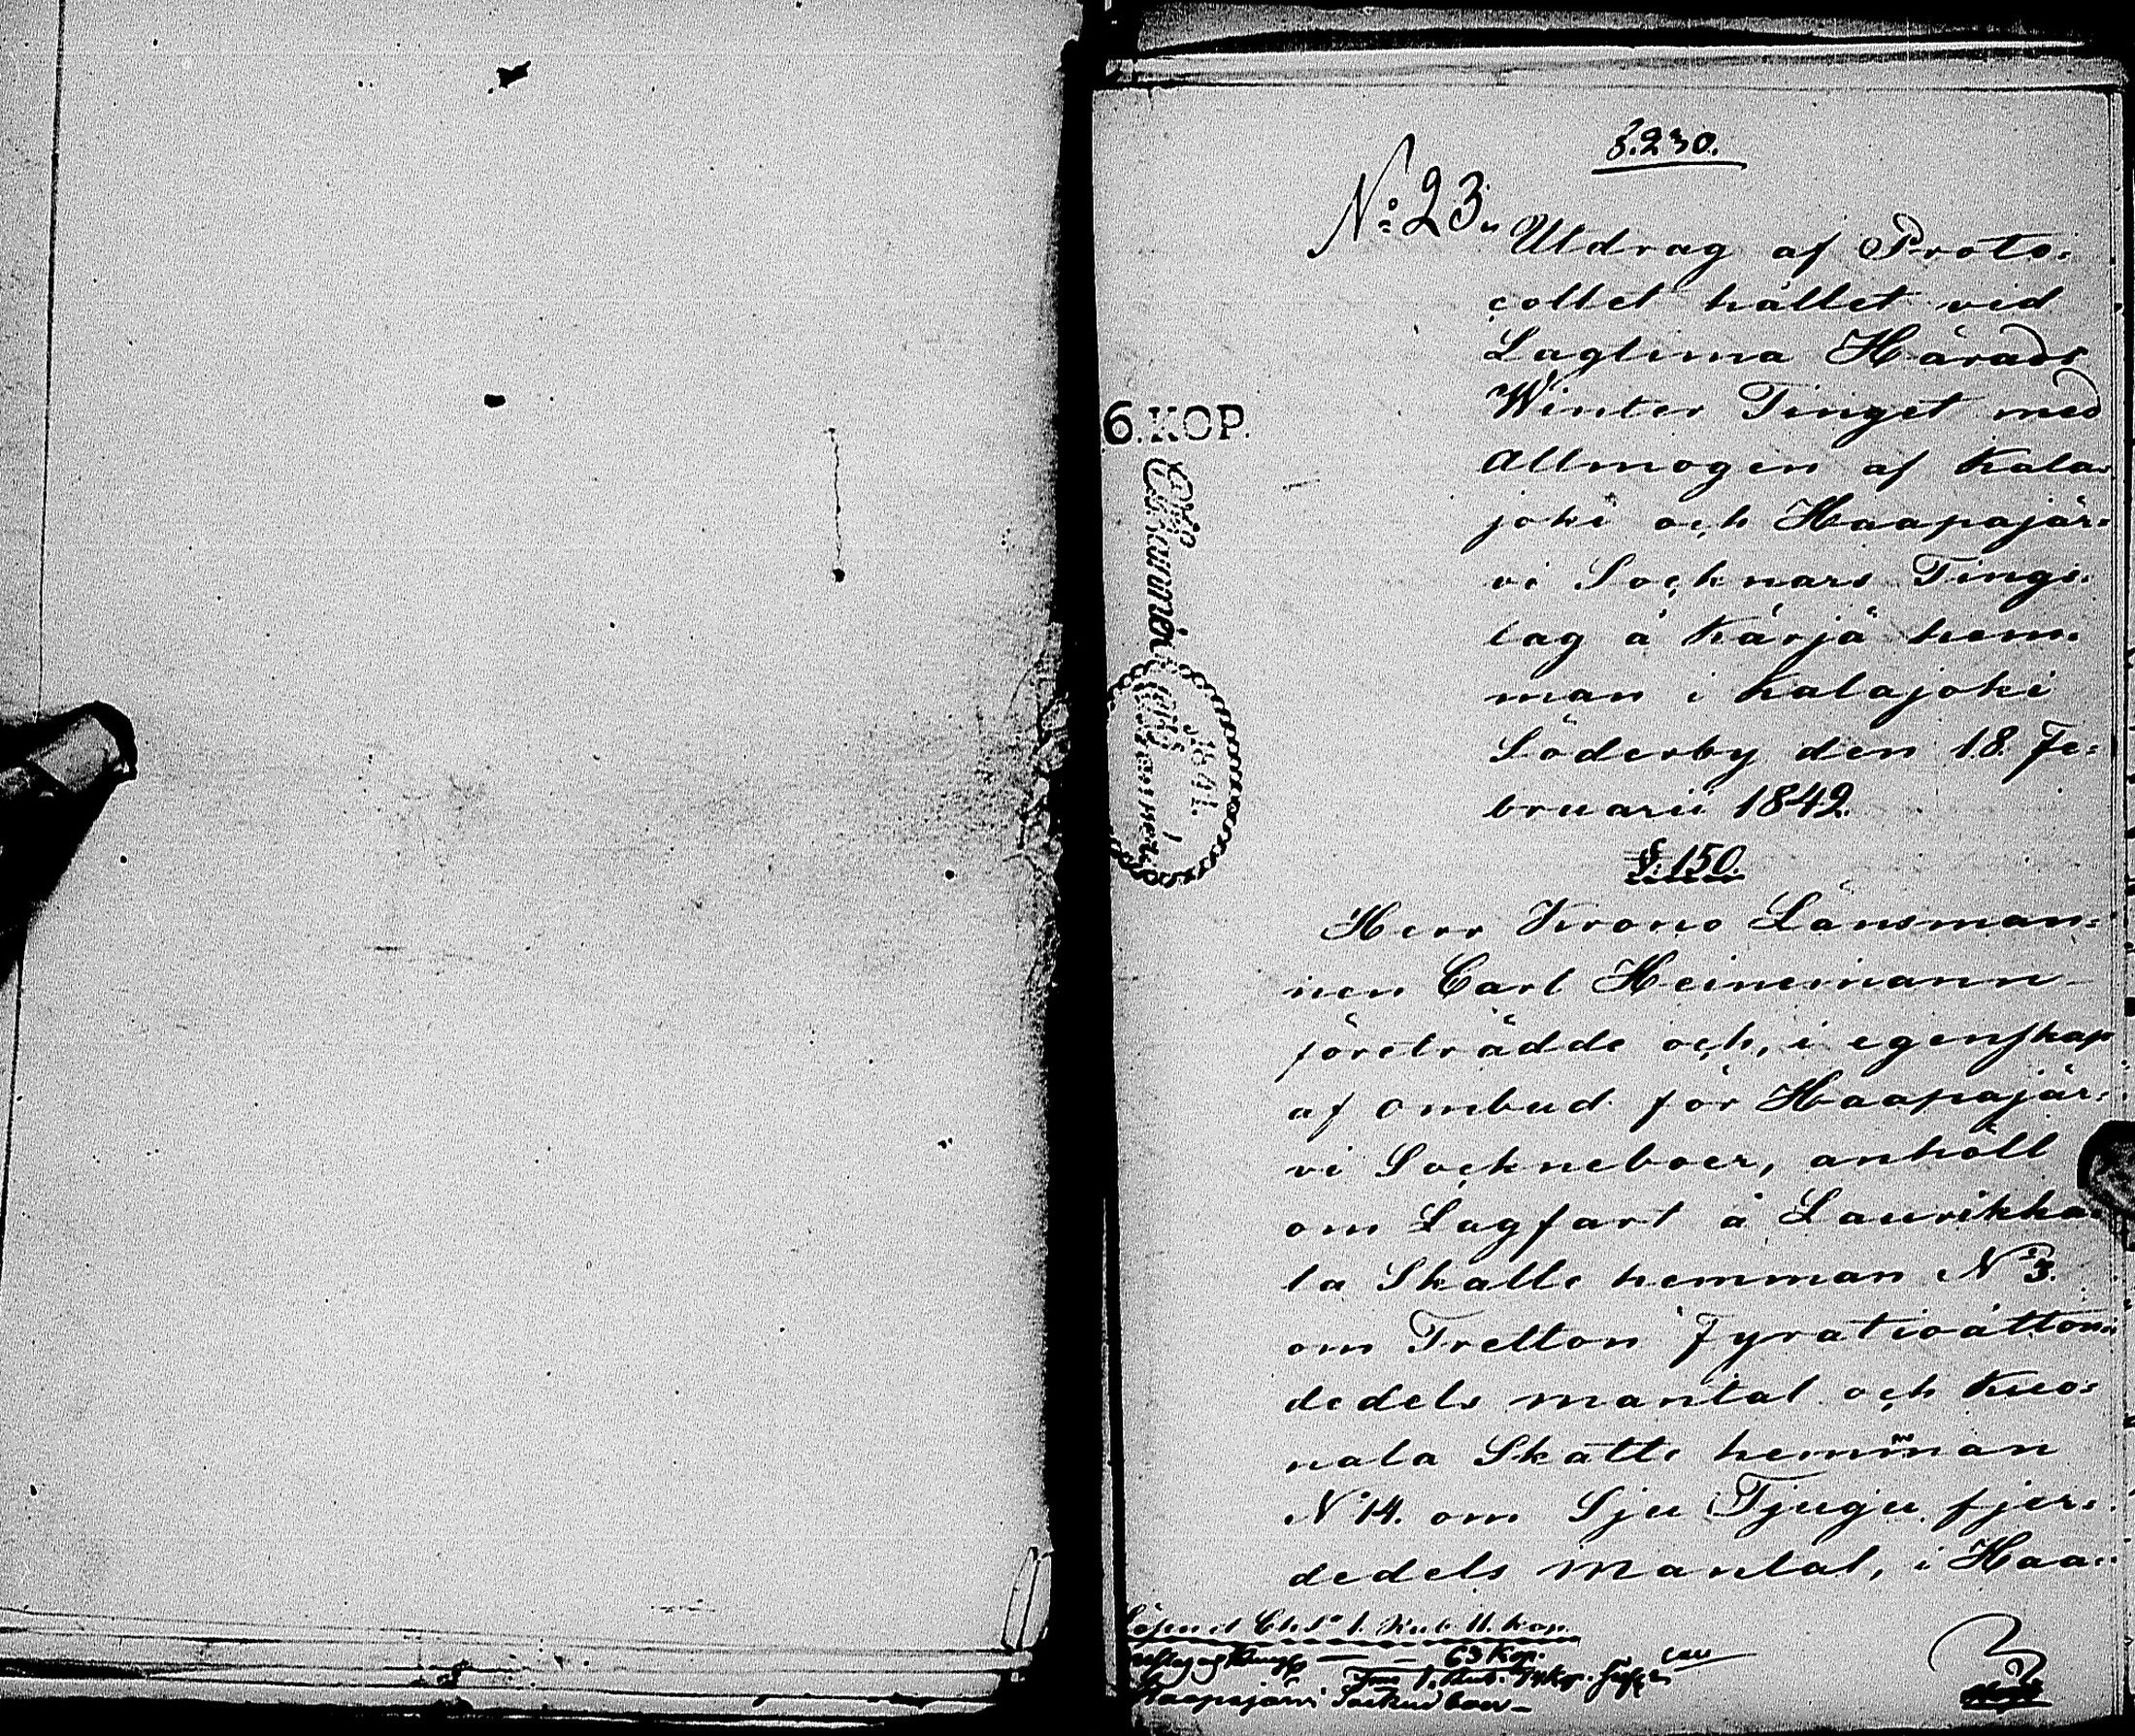 §.230.
No 23.
Utdrag af Proto=
collet hållet vid
Lagtima Härads
Winter Tinget med
Allmogen af Kala=
joki och Haapajär=
vi Socknars Tings=
lag å Kärjä hem=
man i Kalajoki
Söderby den 18. Fe=
bruarii 1842.
6.KOP.
1841.
§. 150.
Herr Krono Länsman=
nen Carl Heinemann
företrädde och, i egenskap
af ombud för Haapajär=
vi Sockneboer, anhöll
om Lagfart å Laurikka=
la Skatte hemman No 3.
om Tretton Fyratioåtton=
dedels mantal och Kuo=
nala Skatte hemman
No 14. om Sju Tjugu fjer=
dedels mantal, i Haa=
Lösen et Ch. Sa 1. Rub. 11. kop.
63 Kop.
Haapajärvi Sockneboer